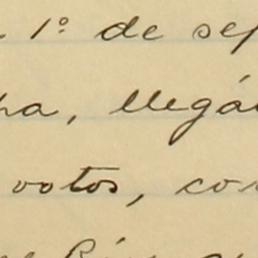 1º de sep
pa, llegá
votos, co